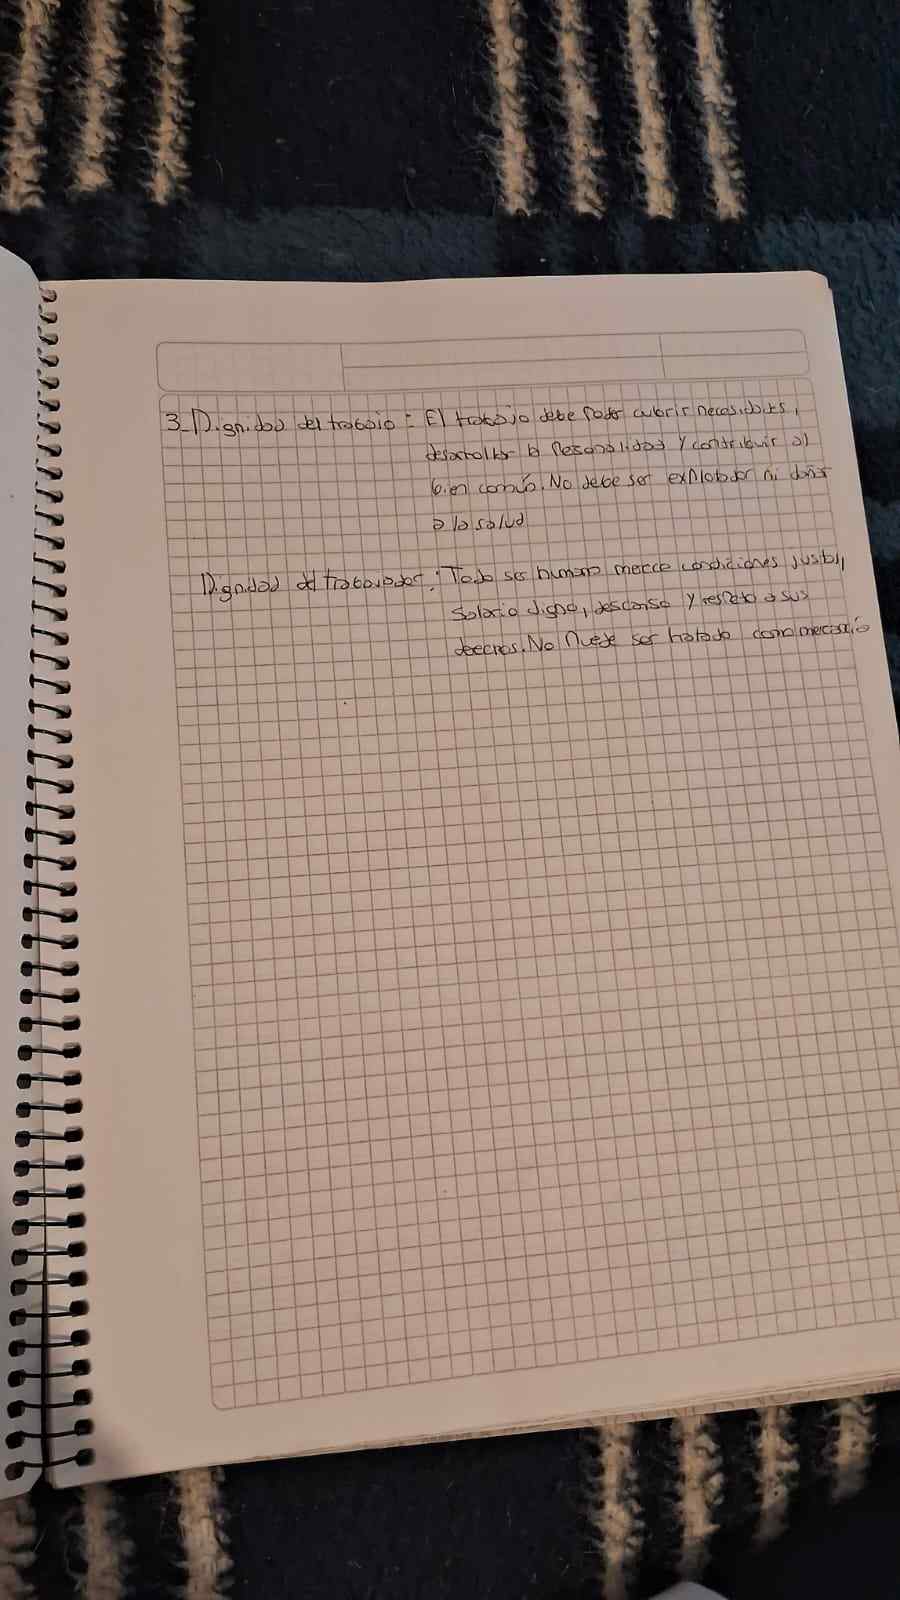 3_Dignidad del trabajo = El trabajo debe poder cubrir necesidades,
desarrollar la Personalidad y contribuir al
bien común. No debe ser explotador ni dañar
a la salud
Dignidad del trabajador: Todo ser humano merece condiciones justas,
Salario digno, descanso y respeto a sus
derechos. No Puede ser tratado como mercancía